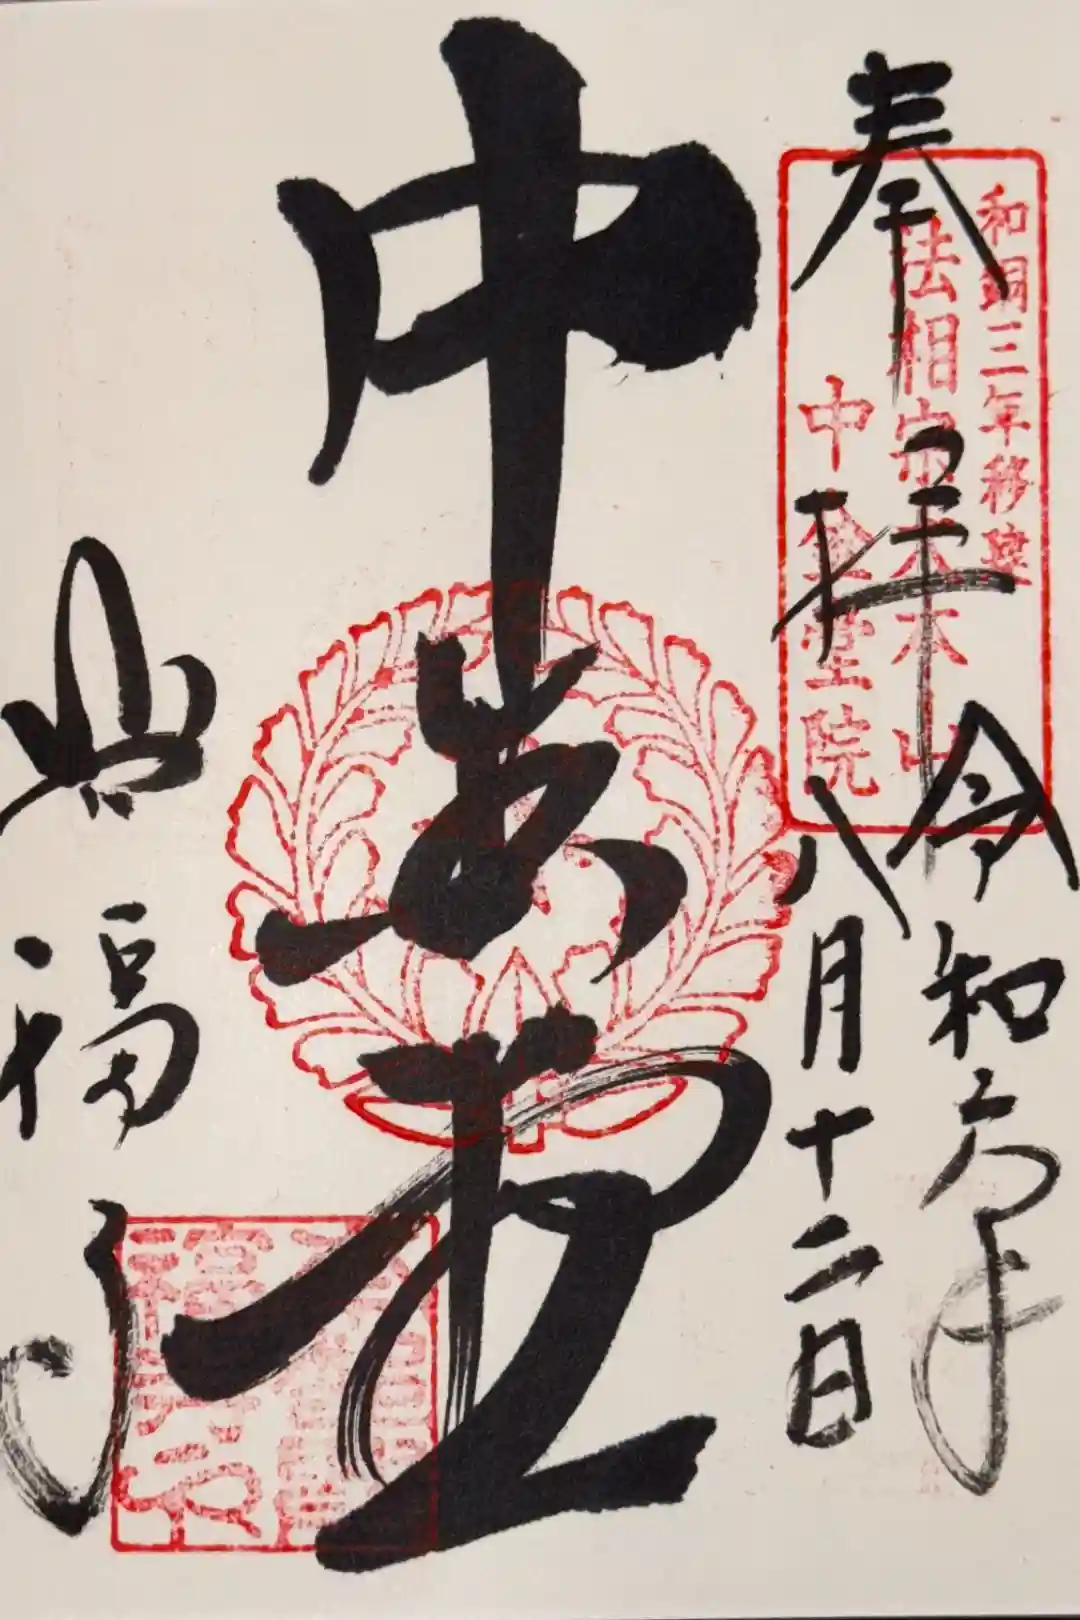 奉拝
令和六年
八月十二日
和銅三年移建
法相宗大本山
中金堂院
中金堂
興福寺